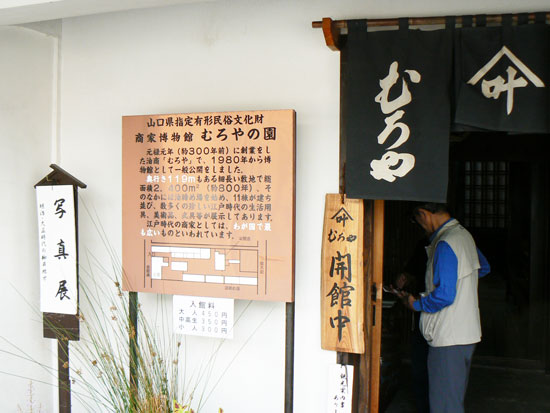 山口県指定有形民俗文化財
商家博物館 むろやの園
元禄元年（約300年前）に創業をし
た油商「むろや」で、1980年から博
物館として一般公開をしました。
奥行き119mもある細長い敷地で総
面積2,400㎡（約800坪）、そ
のなかには
11棟が建ち
並び、数多くの珍しい江戸時代の生活用
具、美術品、文具等が展示してあります。
江戸時代の商家としては、わが国で最
も広いものといわれています。
入館料
大人 450円
中高生 350円
小人 300円
写真展
むろや
叶
むろや
開館中